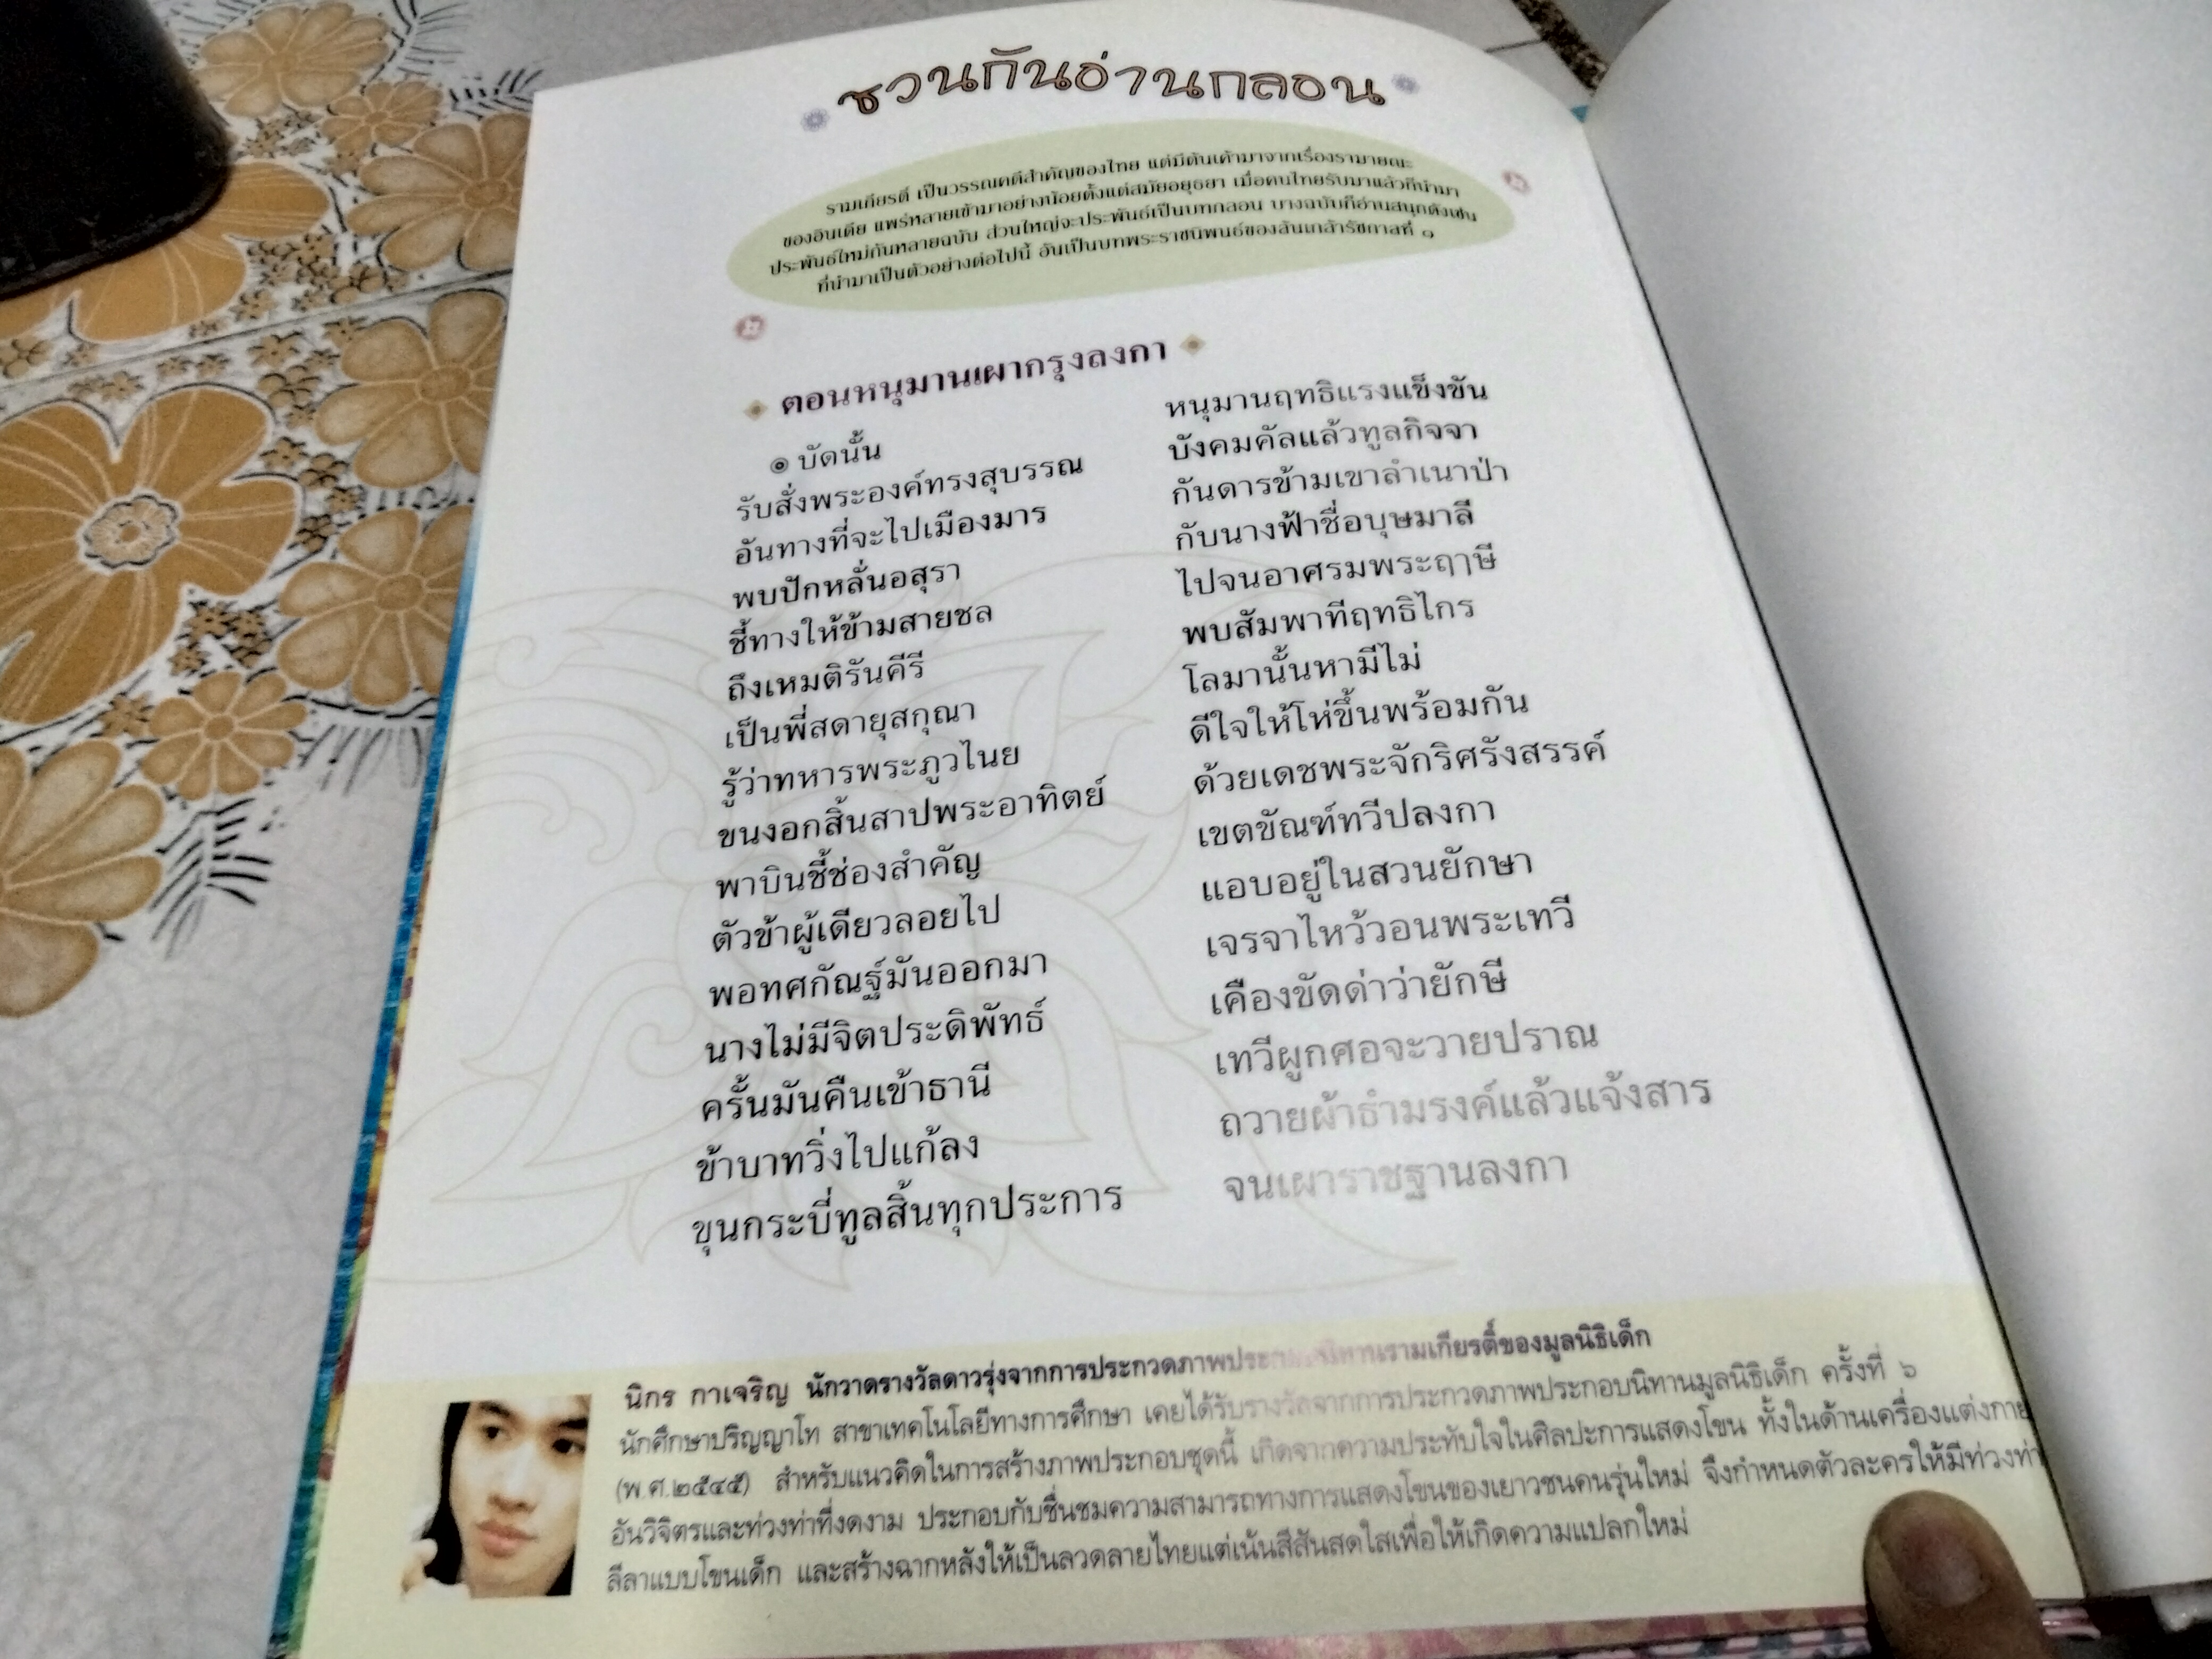 ชวนกันอ่านกลอน
รามเกียรติ์ เป็นวรรณคดีสำคัญของไทย แต่มีต้นเค้ามาจากเรื่องรามายณะ
ของอินเดีย แพร่หลายเข้ามาอย่างน้อยตั้งแต่สมัยอยุธยา เมื่อคนไทยรับมาแล้วก็นำมา
ประพันธ์ใหม่กันหลายฉบับ ส่วนใหญ่จะประพันธ์เป็นบทกลอน บางฉบับก็อ่านสนุกดังเช่น
ที่นำมาเป็นตัวอย่างต่อไปนี้ อันเป็นบทพระราชนิพนธ์ของล้นเกล้ารัชกาลที่ ๑
ตอนหนุมานเผากรุงลงกา
๏ บัดนั้น หนุมานฤทธิแรงแข็งขัน
รับสั่งพระองค์ทรงสุบรรณ บังคมคัลแล้วทูลกิจจา
อันทางที่จะไปเมืองมาร กันดารข้ามเขาลำเนาป่า
พบปักหลั่นอสุรา กับนางฟ้าชื่อบุษมาลี
ชี้ทางให้ข้ามสายชล ไปจนอาศรมพระฤๅษี
ถึงเหมติรันคีรี พบสัมพาทีฤทธิไกร
เป็นพี่สดายุสกุณา โลมานั้นหามีไม่
รู้ว่าทหารพระภูวไนย ดีใจให้โห่ขึ้นพร้อมกัน
ขนงอกสิ้นสาปพระอาทิตย์ ด้วยเดชพระจักริศรังสรรค์
พาบินชี้ช่องสำคัญ เขตขัณฑ์ทวีปลงกา
ตัวข้าผู้เดียวลอยไป แอบอยู่ในสวนยักษา
พอทศกัณฐ์มันออกมา เจรจาไหว้วอนพระเทวี
นางไม่มีจิตประดิพัทธ์ เคืองขัดด่าว่ายักษี
ครั้นมันคืนเข้าธานี เทวีผูกศอจะวายปราณ
ข้าบาทวิ่งไปแก้ลง ถวายผ้าธำมรงค์แล้วแจ้งสาร
ขุนกระบี่ทูลสิ้นทุกประการ จนเผาราชฐานลงกา
นิกร กาเจริญ นักวาดรางวัลดาวรุ่งจากการประกวดภาพประกอบนิทานรามเกียรติ์ของมูลนิธิเด็ก
นักศึกษาปริญญาโท สาขาเทคโนโลยีทางการศึกษา เคยได้รับรางวัลจากการประกวดภาพประกอบนิทานมูลนิธิเด็ก ครั้งที่ ๖
(พ.ศ.๒๕๔๕) สำหรับแนวคิดในการสร้างภาพประกอบชุดนี้ เกิดจากความประทับใจในศิลปะการแสดงโขน ทั้งในด้านเครื่องแต่งกาย
อันวิจิตรและท่วงท่าที่งดงาม ประกอบกับชื่นชมความสามารถทางการแสดงโขนของเยาวชนคนรุ่นใหม่ จึงกำหนดตัวละครให้มีท่วงท่า
ลีลาแบบโขนเด็ก และสร้างฉากหลังให้เป็นลวดลายไทยแต่เน้นสีสันสดใสเพื่อให้เกิดความแปลกใหม่